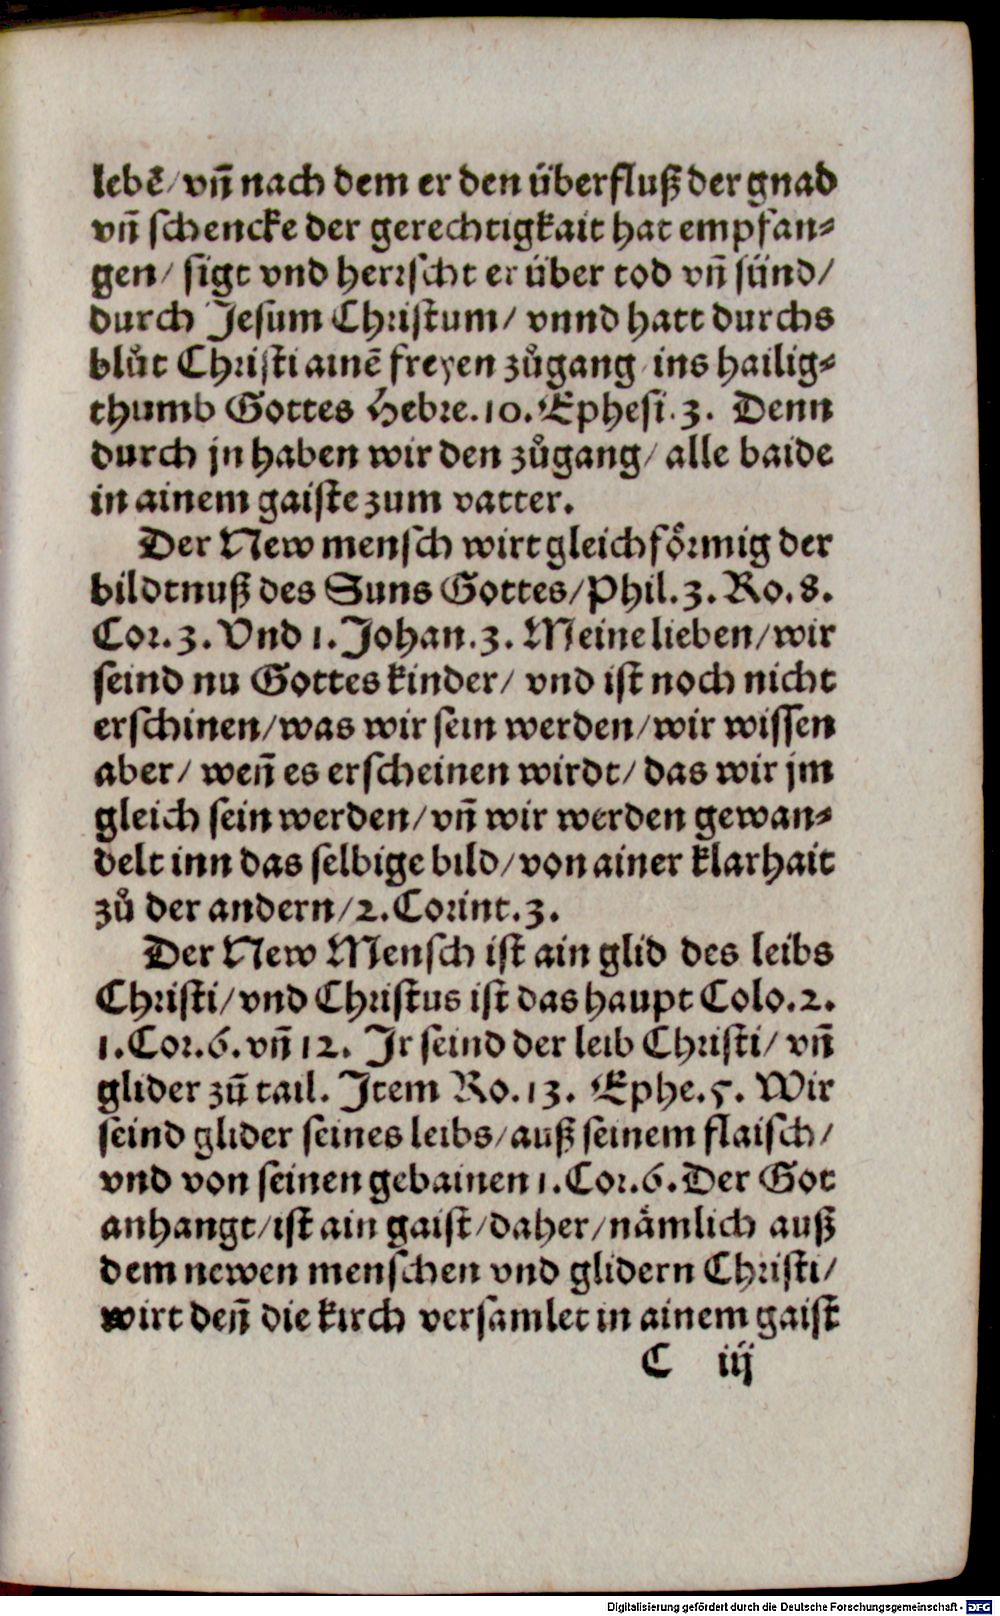 lebē/ vn̄ nach dem er den überfluß der gnad
vn̄ schencke der gerechtigkait hat empfan⸗
gen/ sigt vnd herrscht er über tod vn̄ sünd/
durch Jesum Christum/ vnnd hatt durchs
blůt Christi ainē freyen zůgang ins hailig⸗
thumb Gottes Hebre. 10. Ephesi. 3. Denn
durch jn haben wir den zůgang/ alle baide
in ainem gaiste zum vatter.
Der New mensch wirt gleichförmig der
bildtnuß des Suns Gottes/ Phil. 3. Ro. 8.
Cor. 3. Vnd 1. Johan. 3. Meine lieben/ wir
seind nu Gottes kinder/ vnd ist noch nicht
erschinen/ was wir sein werden/ wir wissen
aber/ wen̄ es erscheinen wirdt/ das wir jm
gleich sein werden/ vn̄ wir werden gewan⸗
delt inn das selbige bild/ von ainer klarhait
zů der andern/ 2. Corint. 3.
Der New Mensch ist ain glid des leibs
Christi/ vnd Christus ist das haupt Colo. 2.
1. Cor. 6. vn̄ 12. Jr seind der leib Christi/ vn̄
glider zū tail. Jtem Ro. 13. Ephe. 5. Wir
seind glider seines leibs/ auß seinem flaisch/
vnd von seinen gebainen 1. Cor. 6. Der Got
anhangt/ ist ain gaist/ daher/ nämlich auß
dem newen menschen vnd glidern Christi/
wirt den̄ die kirch versamlet in ainem gaist
C iij
Digitalisierung gefördert durch die Deutsche Forschungsgemeinschaft - DFG